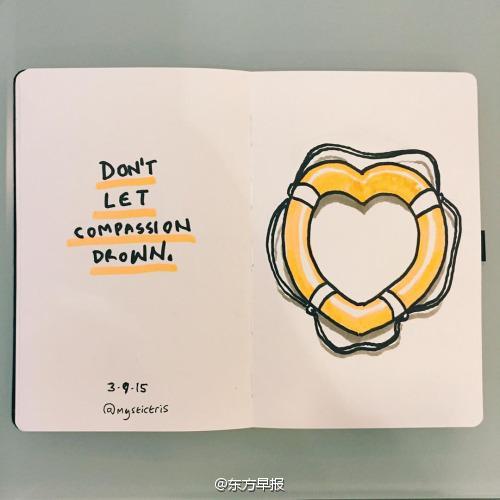 DON'T
LET
COMPASSION
DROWN.
3·9·15
@mystictris
@东方早报